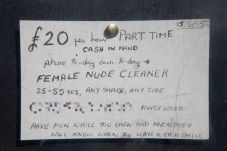 15/6/15
£20 per hour PART TIME
CASH IN HAND
to-day Earn to-day *
FEMALE NUDE CLEANER
25-55 YRS, ANY SHAPE, ANY SIZE
HAVE FUN WHILE YOU EARN AND KNOWBODY
WILL KNOW WHEN YOU LEAVE WITH A SMILE